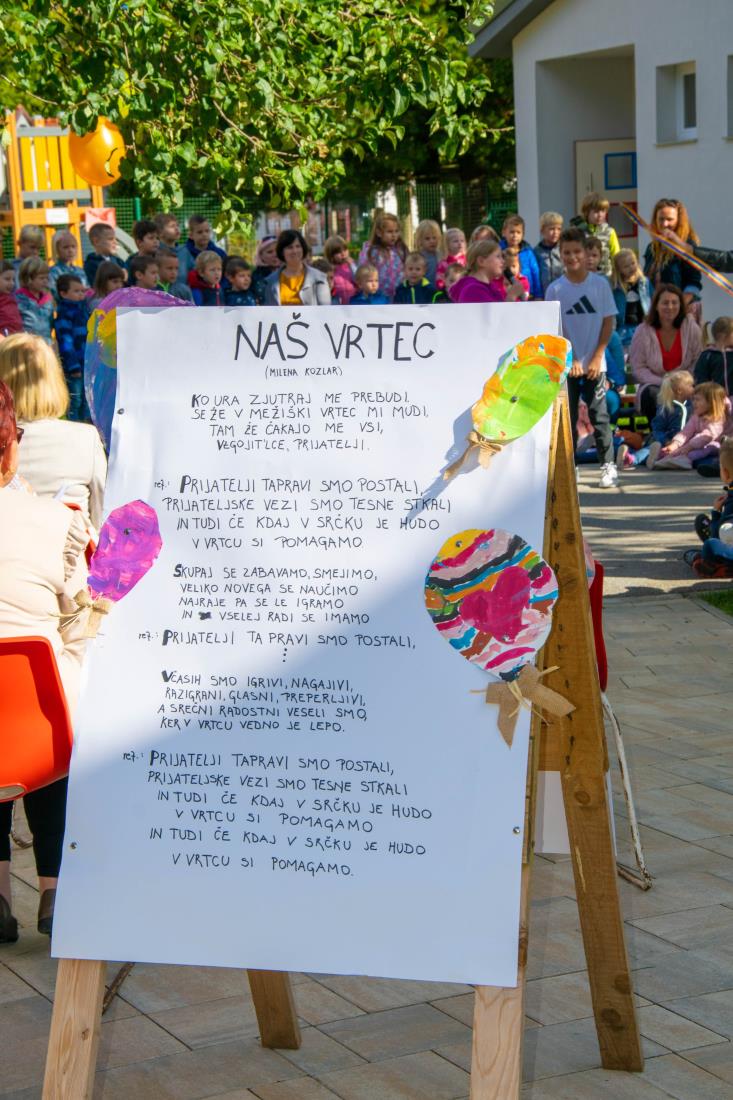 NAŠ VRTEC
(MILENA KOZLAR)
KO URA ZJUTRAJ ME PREBUDI.
SE ŽE V MEŽIŠKI VRTEC MI MUDI,
TAM ŽE ČAKAJO ME VSI,
VZGOJIT'LCE, PRIJATELJI.
ref.: PRIJATELJI TAPRAVI SMO POSTALI,
PRIJATELJSKE VEZI SMO TESNE STKALI
IN TUDI ČE KDAJ V SRČKU JE HUDO
V VRTCU SI POMAGAMO.
SKUPAJ SE ZABAVAMO, SMEJIMO,
VELIKO NOVEGA SE NAUČIMO
NAJRAJE PA SE LE IGRAMO
IN VSELEJ RADI SE IMAMO
ref.: PRIJATELJI TA PRAVI SMO POSTALI,
⋮
VČASIH SMO IGRIVI, NAGAJIVI,
RAZIGRANI, GLASNI, PREPERLJIVI,
A SREČNI RADOSTNI VESELI SMO,
KER V VRTCU VEDNO JE LEPO.
ref.: PRIJATELJI TAPRAVI SMO POSTALI,
PRIJATELJSKE VEZI SMO TESNE STKALI
IN TUDI ČE KDAJ V SRČKU JE HUDO
V VRTCU SI POMAGAMO
IN TUDI ČE KDAJ V SRČKU JE HUDO
V VRTCU SI POMAGAMO.